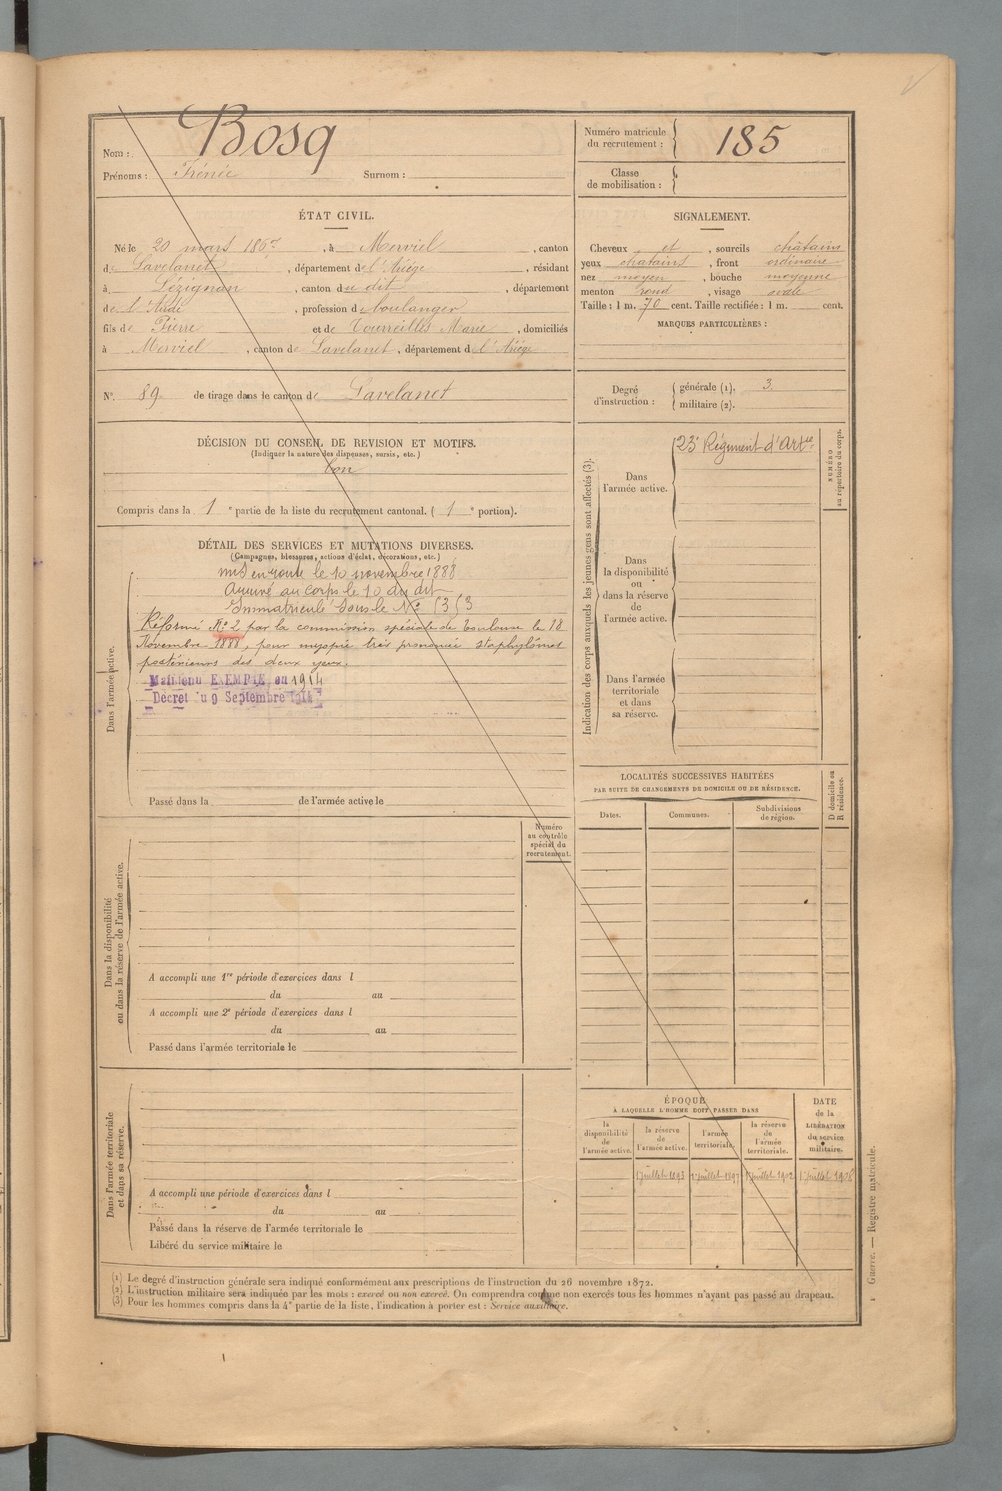 Nom : Bosq
Prénoms : Irénée Surnom :
Numéro matricule du recrutement : 185
Classe de mobilisation :
ÉTAT CIVIL.
Né le 20 mars 1867, à Merviel, canton
de Lavelanet, département de l'Ariège, résidant
à Lézignan, canton du dit, département
de l'Aude, profession de boulanger
fils de Pierre et de Tourreilles Marie, domiciliés
à Merviel, canton de Lavelanet, département de l'Ariège
SIGNALEMENT.
Cheveux et, sourcils châtains
yeux châtains, front ordinaire
nez moyen, bouche moyenne
menton rond, visage ovale
Taille : 1 m. 70 cent. Taille rectifiée : 1 m. cent.
MARQUES PARTICULIÈRES :
N° 89 de tirage dans le canton de Lavelanet
Degré d'instruction : générale (1). 3
militaire (2).
DÉCISION DU CONSEIL DE REVISION ET MOTIFS.
(Indiquer la nature des dispenses, sursis, etc.)
bon
Compris dans la 1e partie de la liste du recrutement cantonal. ( 1e portion).
DÉTAIL DES SERVICES ET MUTATIONS DIVERSES.
(Campagnes, blessures, actions d'éclat, décorations, etc.)
Dans l'armée active.
mis en route le 10 novembre 1888
Arrivé au corps le 10 du dit
Immatriculé sous le N° 5353
Réformé N° 2 par la commission spéciale de Toulouse le 18
Novembre 1888, pour myopie très prononcée staphylômes
postérieurs des deux yeux.
Maintenu EXEMPTÉ en 1914
Décret du 9 Septembre 1914
Passé dans la de l'armée active le
Indication des corps auxquels les jeunes gens sont affectés (3).
Dans l'armée active.
23e Régiment d'Artie
NUMÉRO au répertoire du corps.
Dans la disponibilité ou dans la réserve de l'armée active.
Dans l'armée territoriale et dans sa réserve.
LOCALITÉS SUCCESSIVES HABITÉES
PAR SUITE DE CHANGEMENTS DE DOMICILE OU DE RÉSIDENCE.
D domicile ou R résidence.
Dates. Communes. Subdivisions de région.
Numéro au contrôle spécial du recrutement.
Dans la disponibilité ou dans la réserve de l'armée active.
A accompli une 1re période d'exercices dans l
du au
A accompli une 2e période d'exercices dans l
du au
Passé dans l'armée territoriale le
Dans l'armée territoriale et dans sa réserve.
A accompli une période d'exercices dans l
du au
Passé dans la réserve de l'armée territoriale le
Libéré du service militaire le
ÉPOQUE
À LAQUELLE L'HOMME DOIT PASSER DANS
la disponibilité de l'armée active.
la réserve de l'armée active.
l'armée territoriale.
la réserve de l'armée territoriale.
DATE de la LIBÉRATION du service militaire.
1 juillet 1893 1 juillet 1897 1 juillet 1902 1 juillet 1908
(1) Le degré d'instruction générale sera indiqué conformément aux prescriptions de l'instruction du 26 novembre 1872.
(2) L'instruction militaire sera indiquée par les mots : exercé ou non exercé. On comprendra comme non exercés tous les hommes n'ayant pas passé au drapeau.
(3) Pour les hommes compris dans la 4e partie de la liste, l'indication à porter est : Service auxiliaire.
Guerre. — Registre matricule.